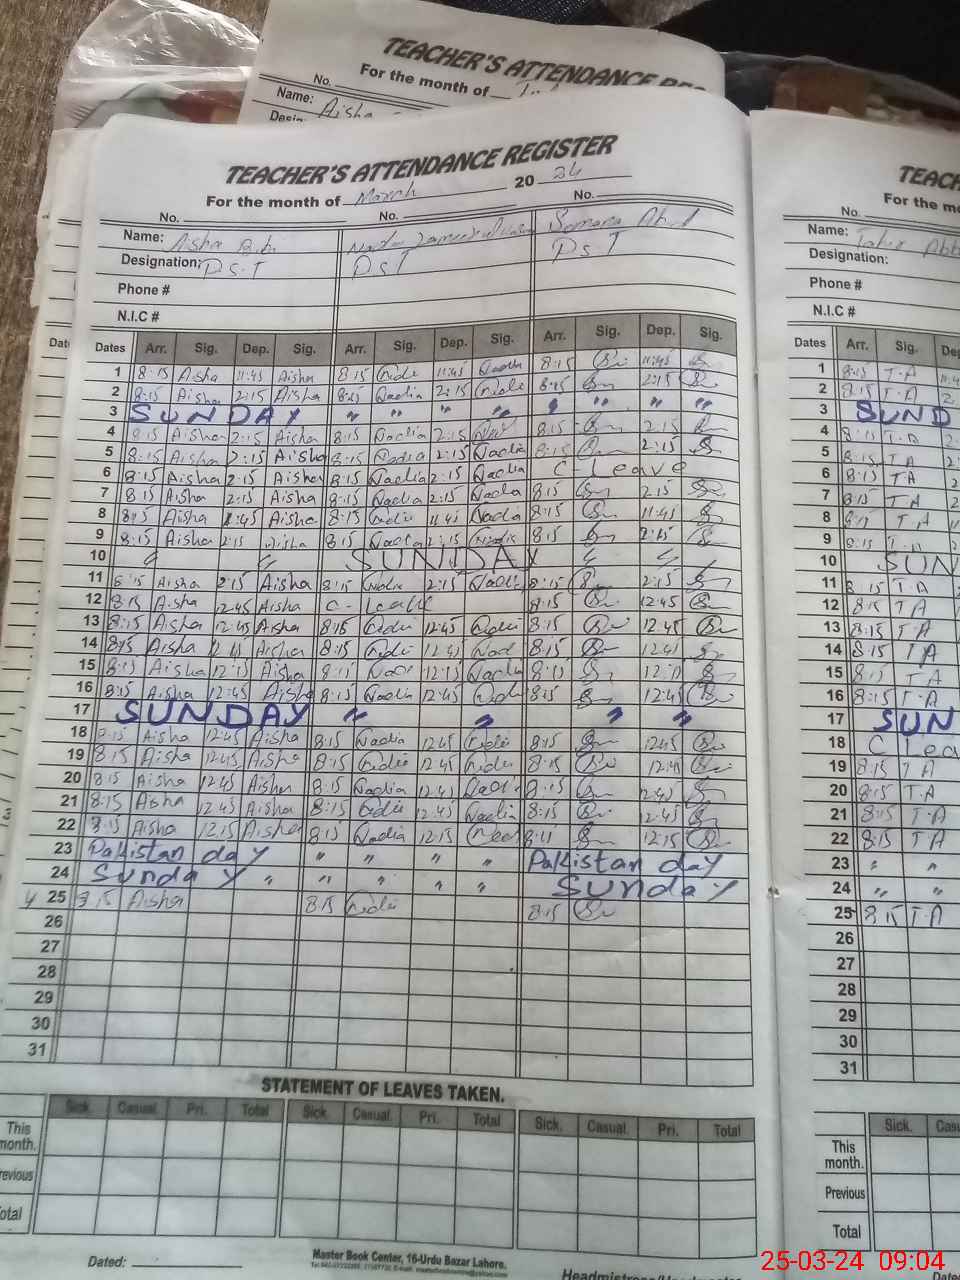 TEACHER'S ATTENDANCE REG
For the month of
No.
Name: Aisha
TEACHER'S ATTENDANCE REGISTER
For the month of March 20 24
No. No. No.
Name: Aisha Bibi Nadia Samara
Designation: P.S.T PST P.S.T
Phone #
N.I.C #
Dates Arr. Sig. Dep. Sig. Arr. Sig. Dep. Sig. Arr. Sig. Dep. Sig.
1 8:15 Aisha 11:45 Aisha 8:15 Nadia 11:45 Nadia 8:15 11:45
2 8:15 Aisha 2:15 Aisha 8:15 Nadia 2:15 Nadia 8:15 2:15
3 SUNDAY " " " " " " " "
4 8:15 Aisha 2:15 Aisha 8:15 Nadia 2:15 8:15 2:15
5 8:15 Aisha 2:15 Aisha 8:15 Nadia 2:15 Nadia 8:15 2:15
6 8:15 Aisha 2:15 Aisha 8:15 Nadia 2:15 Nadia C-Leave
7 8:15 Aisha 2:15 Aisha 8:15 Nadia 2:15 Nadia 8:15 2:15
8 8:15 Aisha 11:45 Aisha 8:15 Nadia 11:45 Nadia 8:15 11:45
9 8:15 Aisha 2:15 Aisha 8:15 Nadia 2:15 Nadia 8:15 2:15
10 " " SUNDAY " "
11 8:15 Aisha 2:15 Aisha 8:15 Nadia 2:15 Nadia 8:15 2:15
12 8:15 Aisha 12:45 Aisha C-Leave 8:15 12:45
13 8:15 Aisha 12:45 Aisha 8:15 Nadia 12:45 Nadia 8:15 12:45
14 8:15 Aisha 12:45 Aisha 8:15 Nadia 12:45 Nadia 8:15 12:45
15 8:15 Aisha 12:15 Aisha 8:15 Nadia 12:15 Nadia 8:15
16 8:15 Aisha 12:45 Aisha 8:15 Nadia 12:45 Nadia 8:15 12:45
17 SUNDAY " " " "
18 8:15 Aisha 12:45 Aisha 8:15 Nadia 12:45 Nadia 8:15 12:45
19 8:15 Aisha 12:45 Aisha 8:15 Nadia 12:45 Nadia 8:15 12:45
20 8:15 Aisha 12:45 Aisha 8:15 Nadia 12:45 Nadia 8:15 12:45
21 8:15 Aisha 12:45 Aisha 8:15 Nadia 12:45 Nadia 8:15 12:45
22 8:15 Aisha 12:15 Aisha 8:15 Nadia 12:15 12:15
23 Pakistan day " " " " Pakistan day
24 Sunday " " " " " Sunday
25 8:15 Aisha 8:15 Nadia 8:15
26
27
28
29
30
31
STATEMENT OF LEAVES TAKEN.
Sick. Casual. Pri. Total Sick. Casual. Pri. Total Sick. Casual. Pri. Total
This month.
Previous
Total
Dated:
Master Book Center, 16-Urdu Bazar Lahore.
TEACH
For the mo
No.
Name: Tahir Abb
Designation:
Phone #
N.I.C #
Dates Arr. Sig. De
1 8:15 T.A
2 8:15 T.A
3 SUND
4 8:15 T.A
5 8:15 T.A
6 8:15 T.A
7 8:15 T.A
8 8:15 T.A
9 8:15 T.A
10 SUN
11 8:15 T.A
12 8:15 T.A
13 8:15 T.A
14 8:15 T.A
15 8:15 T.A
16 8:15 T.A
17 SUN
18 C Lea
19 8:15 T.A
20 8:15 T.A
21 8:15 T.A
22 8:15 T.A
23 " "
24 " "
25 8:15 T.A
26
27
28
29
30
31
Sick. Cas
This month.
Previous
Total
Dated
25-03-24 09:04